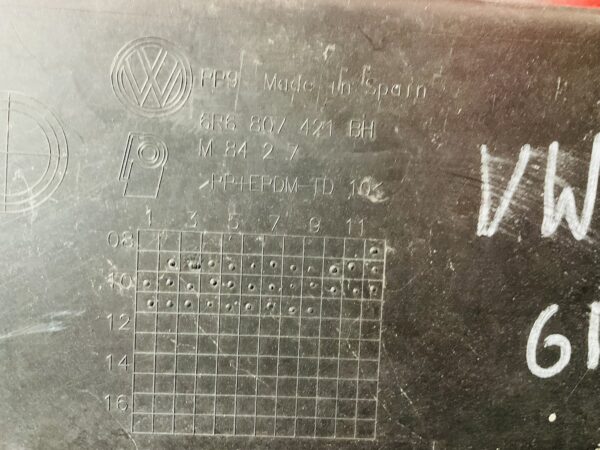 VW
PP9 Made in Spain
6R6 807 421 BH
M 84 2 7
>PP+EPDM-TD 10<
1 3 5 7 9 11
08
10
12
14
16
VW